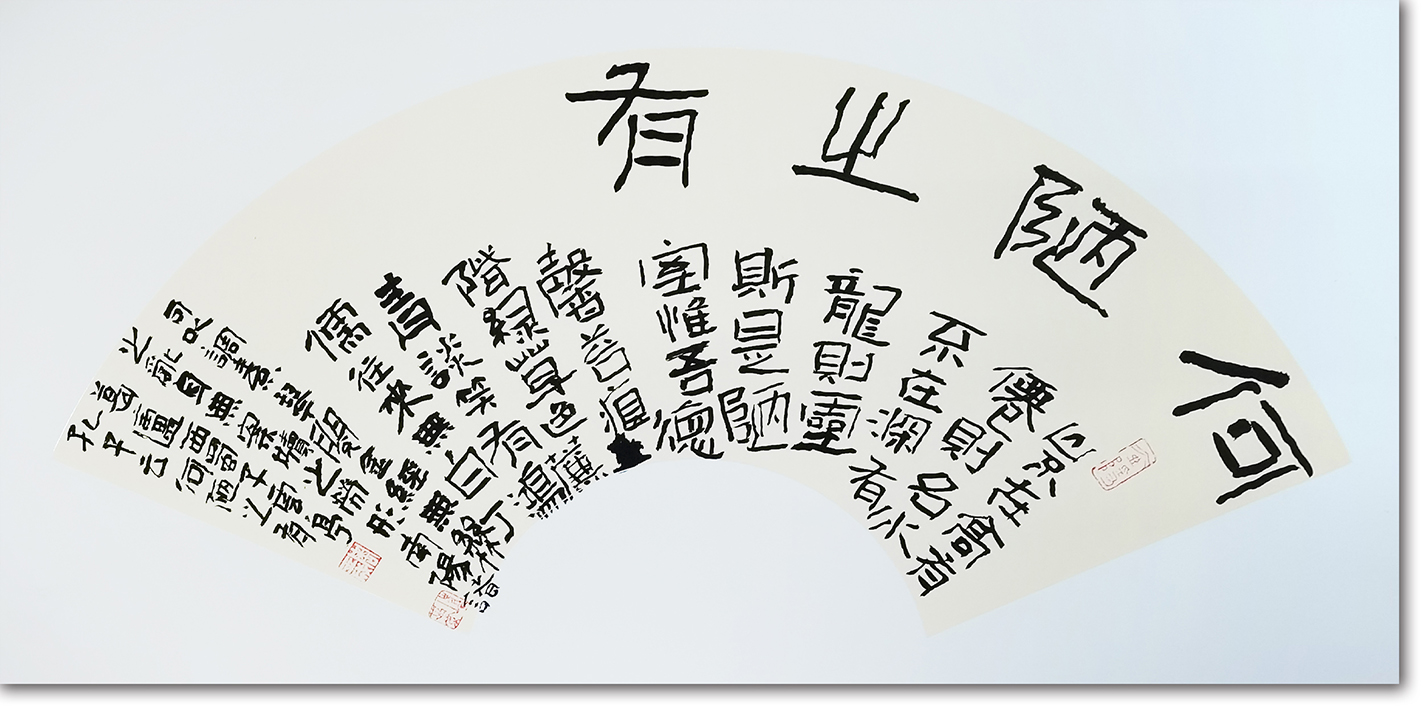 何陋之有
山不在高有
僊則名水
不在深有
龍則靈
斯是陋
室惟吾德
馨苔痕上
階綠草色簾
青談笑有鴻
儒往來無白丁
可以調素琴閱金經無絲竹
之亂耳無案牘之勞形南陽
葛廬西蜀子雲亭
孔子云何陋之有